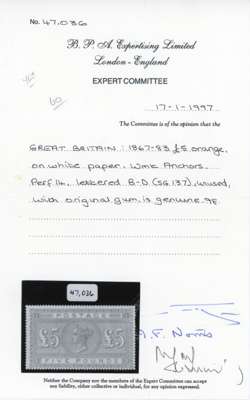 No. 47,036
B. P. A. Expertising Limited
London - England
EXPERT COMMITTEE
60
17-1-1997
The Committee is of the opinion that the
GREAT BRITAIN: 1867-83 £5 orange,
on white paper. Wmk Anchors.
Perf 14, lettered B-D (SG 137), unused,
with original gum is genuine.
47,036
POSTAGE
£5 £5
FIVE POUNDS
A. F. Norris
Neither the Company nor the members of the Expert Committee can accept
any liability, either collective or individual, for any opinion expressed.